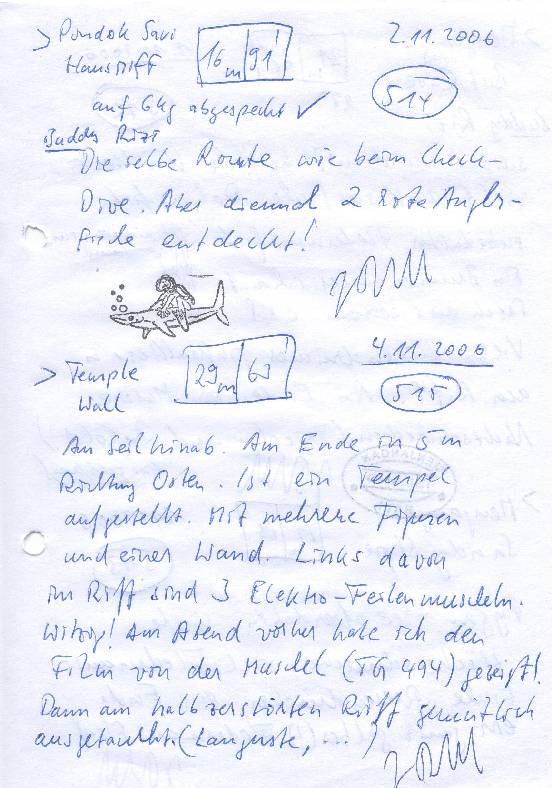 > Pondok Sari
Hausriff
16 m 91'
2.11.2006
514
auf 6kg abgespeckt ✓
Buddy Rizi
Die selbe Route wie beim Check-
Dive. Aber diesmal 2 rote Angler-
fische entdeckt!
> Temple
Wall
29 m 63'
4.11.2006
515
Am Seil hinab. Am Ende in 5m
Richtung Osten. Ist ein Tempel
aufgestellt. Mit mehrere Figuren
und einer Wand. Links davon
im Riff sind 3 Elektro-Feilenmuscheln.
Witzig! Am Abend vorher habe ich den
Film von der Muschel (TG 494) gezeigt!
Dann am halbzerstörten Riff gemütlich
ausgetaucht. (Languste, ...)